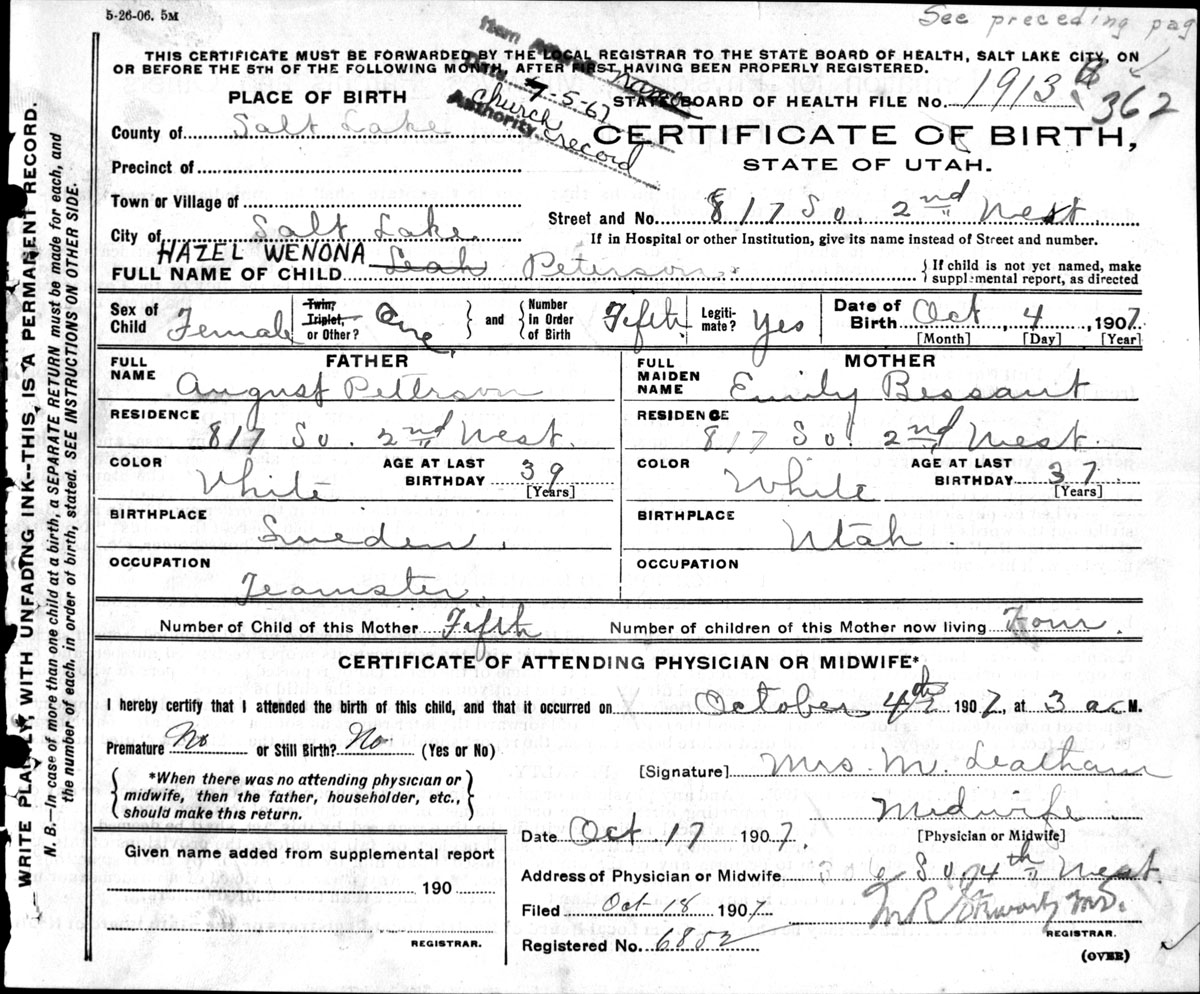 5-26-06. 5M
See preceding pag
THIS CERTIFICATE MUST BE FORWARDED BY THE LOCAL REGISTRAR TO THE STATE BOARD OF HEALTH, SALT LAKE CITY, ON
OR BEFORE THE 5TH OF THE FOLLOWING MONTH, AFTER FIRST HAVING BEEN PROPERLY REGISTERED.
Item Name
Date 7-5-67
Authority church record
PLACE OF BIRTH
STATE BOARD OF HEALTH FILE No. 1913
362
County of Salt Lake
CERTIFICATE OF BIRTH,
STATE OF UTAH.
Precinct of
Town or Village of
Street and No. 817 So. 2nd West
City of Salt Lake
If in Hospital or other Institution, give its name instead of Street and number.
HAZEL WENONA
FULL NAME OF CHILD Leah Peterson
If child is not yet named, make
supplemental report, as directed
Sex of Child Female
Twin, Triplet, or Other? One
and
Number In Order of Birth Fifth
Legitimate? Yes
Date of Birth Oct 4, 1907
[Month] [Day] [Year]
FATHER
MOTHER
FULL NAME August Petterson
FULL MAIDEN NAME Emily Bessant
RESIDENCE 817 So. 2nd West.
RESIDENCE 817 So. 2nd West.
COLOR White
AGE AT LAST BIRTHDAY 39 [Years]
COLOR White
AGE AT LAST BIRTHDAY 37 [Years]
BIRTHPLACE Sweden.
BIRTHPLACE Utah
OCCUPATION Teamster
OCCUPATION
Number of Child of this Mother Fifth
Number of children of this Mother now living Four.
CERTIFICATE OF ATTENDING PHYSICIAN OR MIDWIFE*
I hereby certify that I attended the birth of this child, and that it occurred on October 4th 1907, at 3 a M.
Premature No or Still Birth? No (Yes or No)
*When there was no attending physician or
midwife, then the father, householder, etc.,
should make this return.
[Signature] Mrs. M. Leatham
Midwife
[Physician or Midwife]
Date Oct 17 1907.
Given name added from supplemental report
190
REGISTRAR.
Address of Physician or Midwife 306 So. 4th West
Filed Oct 18 1907
M.D.
REGISTRAR.
Registered No. 6802
(OVER)
WRITE PLAINLY, WITH UNFADING INK--THIS IS A PERMANENT RECORD.
N. B.—In case of more than one child at a birth, a SEPARATE RETURN must be made for each, and
the number of each, in order of birth, stated. SEE INSTRUCTIONS ON OTHER SIDE.